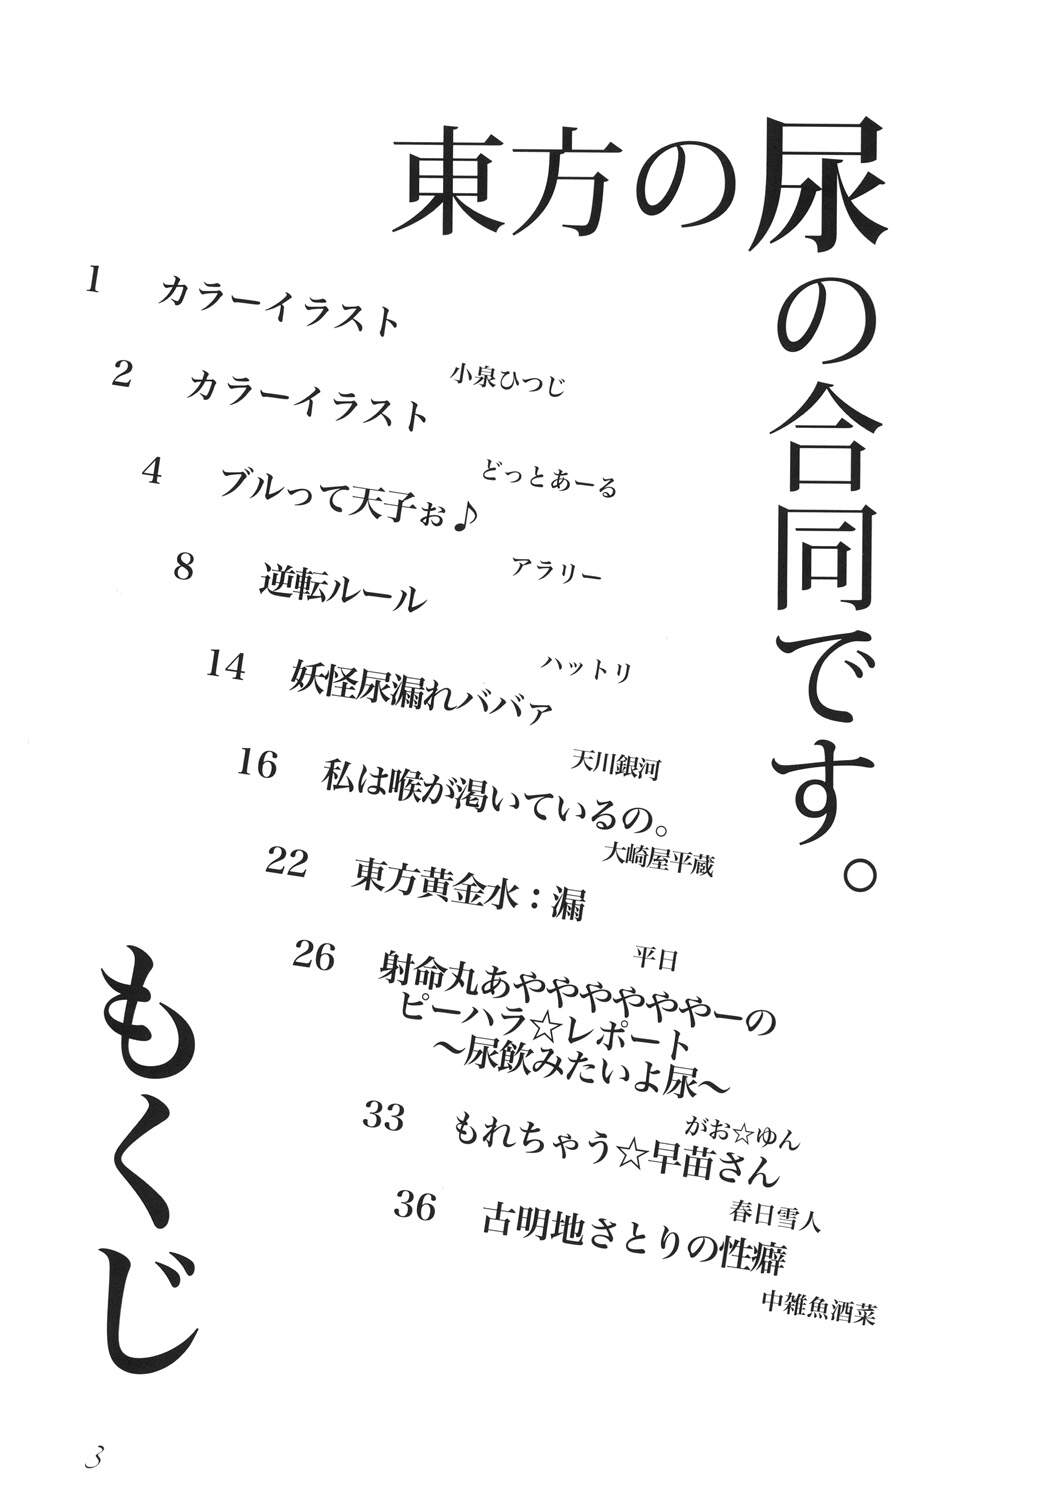 東方の尿の合同です。
もくじ
1 カラーイラスト
小泉ひつじ
2 カラーイラスト
どっとあーる
4 ブルって天子ぉ♪
アラリー
8 逆転ルール
ハットリ
14 妖怪尿漏れババァ
天川銀河
16 私は喉が渇いているの。
大崎屋平蔵
22 東方黄金水：漏
平日
26 射命丸あややややややーの
ピーハラ☆レポート
～尿飲みたいよ尿～
がお☆ゆん
33 もれちゃう☆早苗さん
春日雪人
36 古明地さとりの性癖
中雑魚酒菜
3